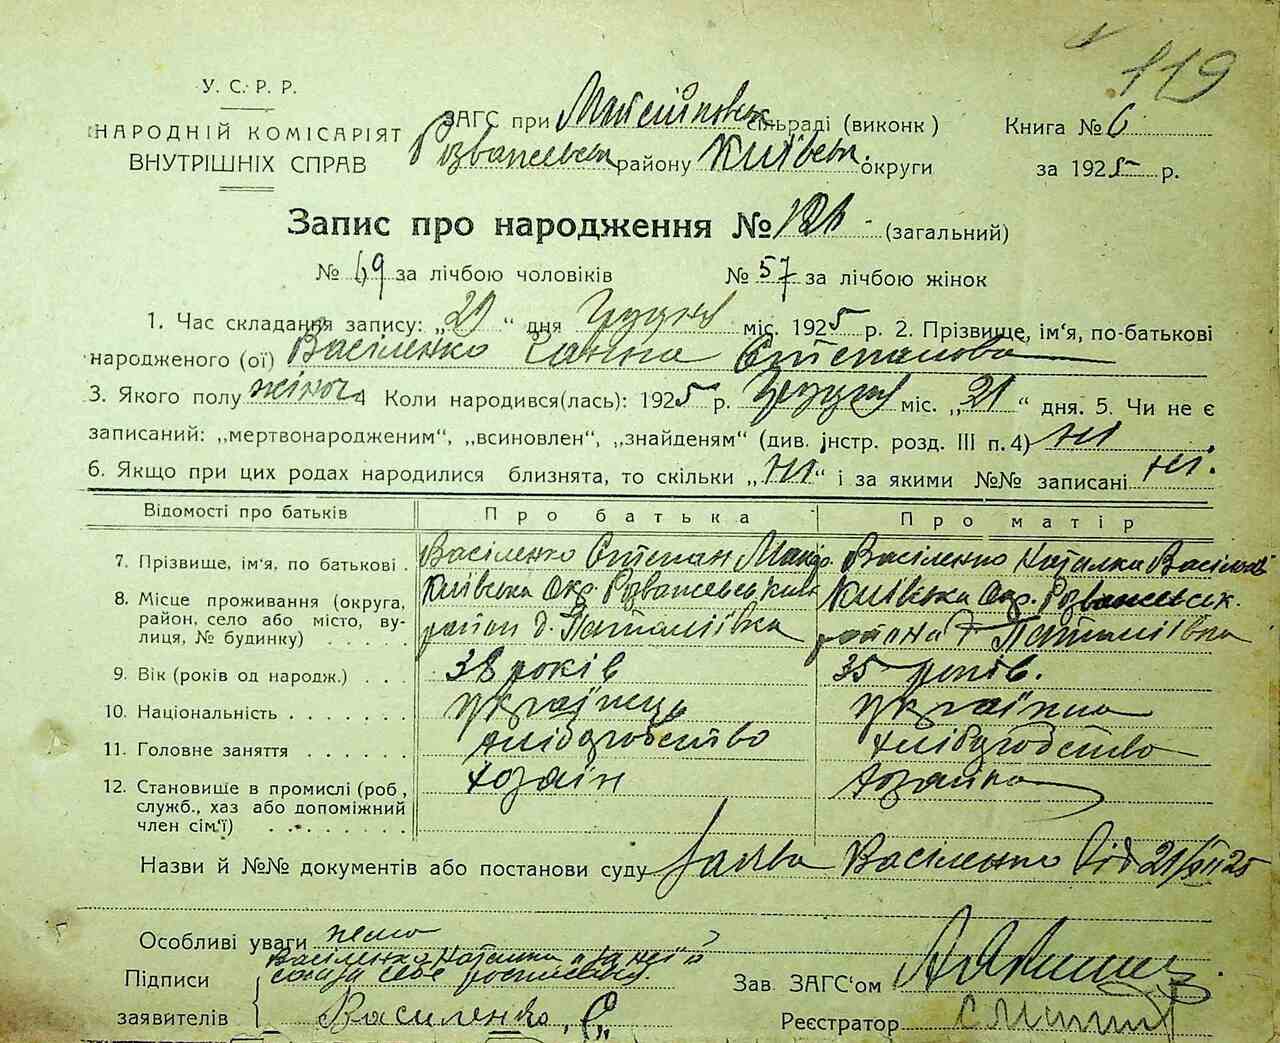 119
У. С. Р. Р.
НАРОДНІЙ КОМІСАРІЯТ
ВНУТРІШНІХ СПРАВ
ЗАГС при сільраді (виконк)
району Київськ. округи
Книга № 6
за 1925 р.
Запис про народження № 121 (загальний)
№ 69 за лічбою чоловіків № 57 за лічбою жінок
1. Час складання запису: „21“ дня Грудня міс. 1925 р. 2. Прізвище, ім'я, по-батькові
народженого (ої) Василенко Ганна Степанова
3. Якого полу жіноч. 4 Коли народився(лась): 1925 р. Грудня міс. „21“ дня. 5. Чи не є
записаний: „мертвонародженим“, „всиновлен“, „знайденям“ (див. інстр. розд. III п. 4) Ні
6. Якщо при цих родах народилися близнята, то скільки „Ні“ і за якими №№ записані Ні.
Відомості про батьків Про батька Про матір
7. Прізвище, ім'я, по батькові . Василенко Степан Василенко Наталка
8. Місце проживання (округа, Київська Окр. Розважевськ Київська Окр. Розважевськ.
район, село або місто, ву-
лиця, № будинку) район
9. Вік (років од народж.) . . . 38 років 35 років.
10. Національність . . . . . . . українець українка
11. Головне заняття . . . . . . хліборобство хліборобство
12. Становище в промислі (роб, хозаін хозайка
служб., хаз або допоміжний
член сім'ї) . . . . . . .
Назви й №№ документів або постанови суду Заява Василенко від 21/XII 25
Особливі уваги нема
Підписи Василенко Наталка
заявителів Василенко, С.
Зав. ЗАГС'ом
Реєстратор